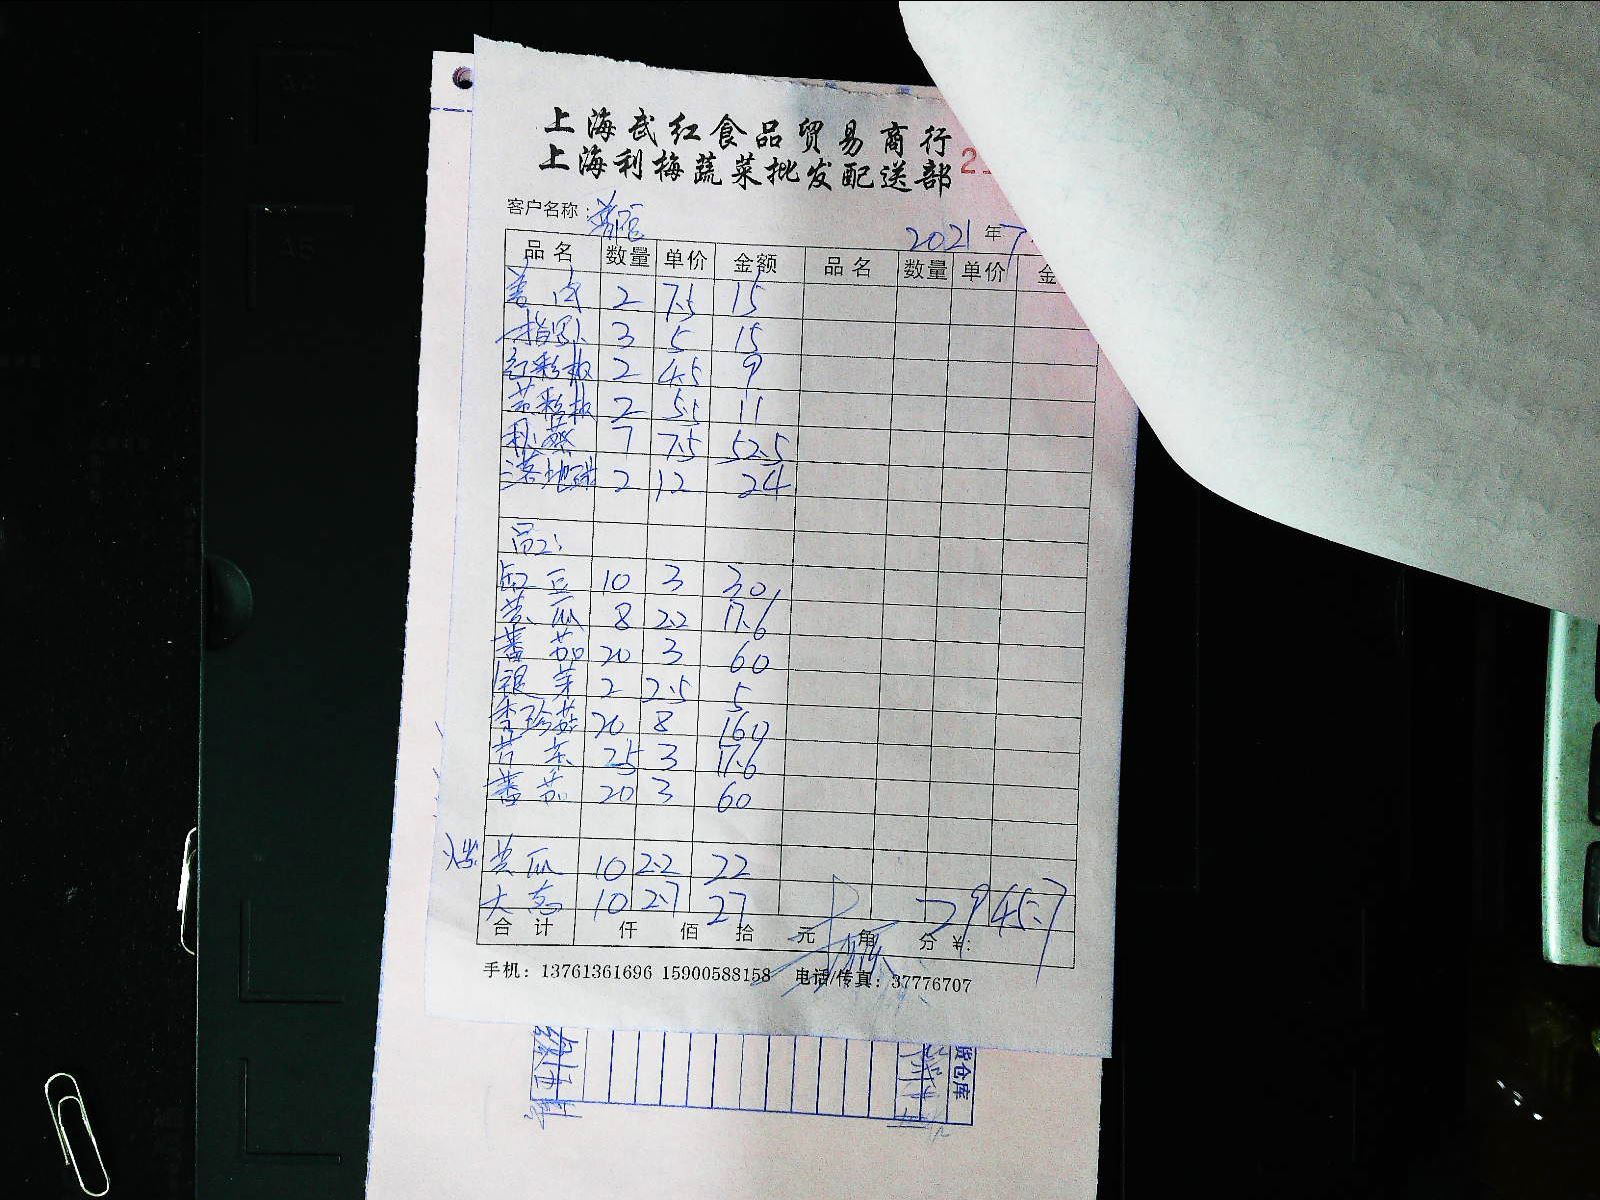 上海武红食品贸易商行
上海利梅蔬菜批发配送部 2
客户名称：
2021 年 7
品名 数量 单价 金额 品名 数量 单价 金
2 7.5 15
3 5 15
红彩椒 2 4.5 9
黄彩椒 2 5.5 11
7 7.5 52.5
2 12 24
员工:
豆 10 3 30
黄瓜 8 2.2 17.6
蕃茄 20 3 60
银芽 2 2.5 5
秀珍菇 20 8 160
25 3 17.6
蕃茄 20 3 60
黄瓜 10 2.2 22
大葱 10 2.7 27
945.7
合计 仟 佰 拾 元 角 分 ¥:
手机：13761361696 15900588158 电话/传真：37776707
货仓库